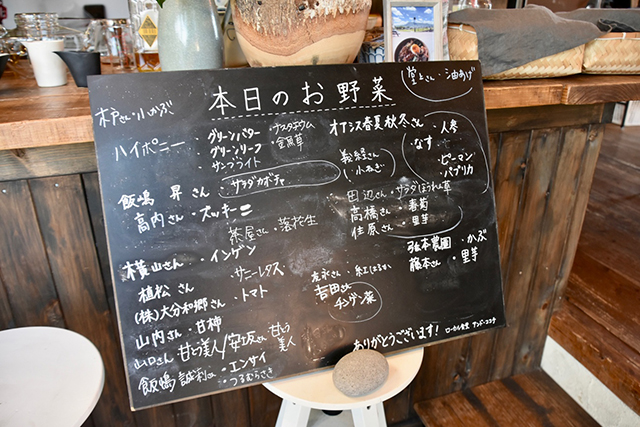 本日のお野菜
木戸さん・小かぶ
ハイポニー・グリーンバター・ナスタチウム
・グリーンリーフ・金魚草
・サンフライト
飯嶋 昇さん・サラダカボチャ
高内さん・ズッキーニ
茶屋さん・落花生
横山さん・インゲン
植松さん・サニーレタス
(株)大分和郷さん・トマト
山内さん・甘柿
山口さん 甘とう美人/安坂さん 甘とう美人
飯嶋 誠利さん・エンサイ
・つるむらさき
堂上さん・油あげ
オアシス春夏秋冬さん・人参
・なす
・ピーマン
・パプリカ
義経さん
・小ねぎ
田辺さん・サラダほうれん草
高橋さん・春菊
佳原さん・里芋
弘本農園・かぶ
藤本さん・里芋
友永さん・紅はるか
吉田さん
チンゲン菜
ありがとうございます!
ローカル食堂